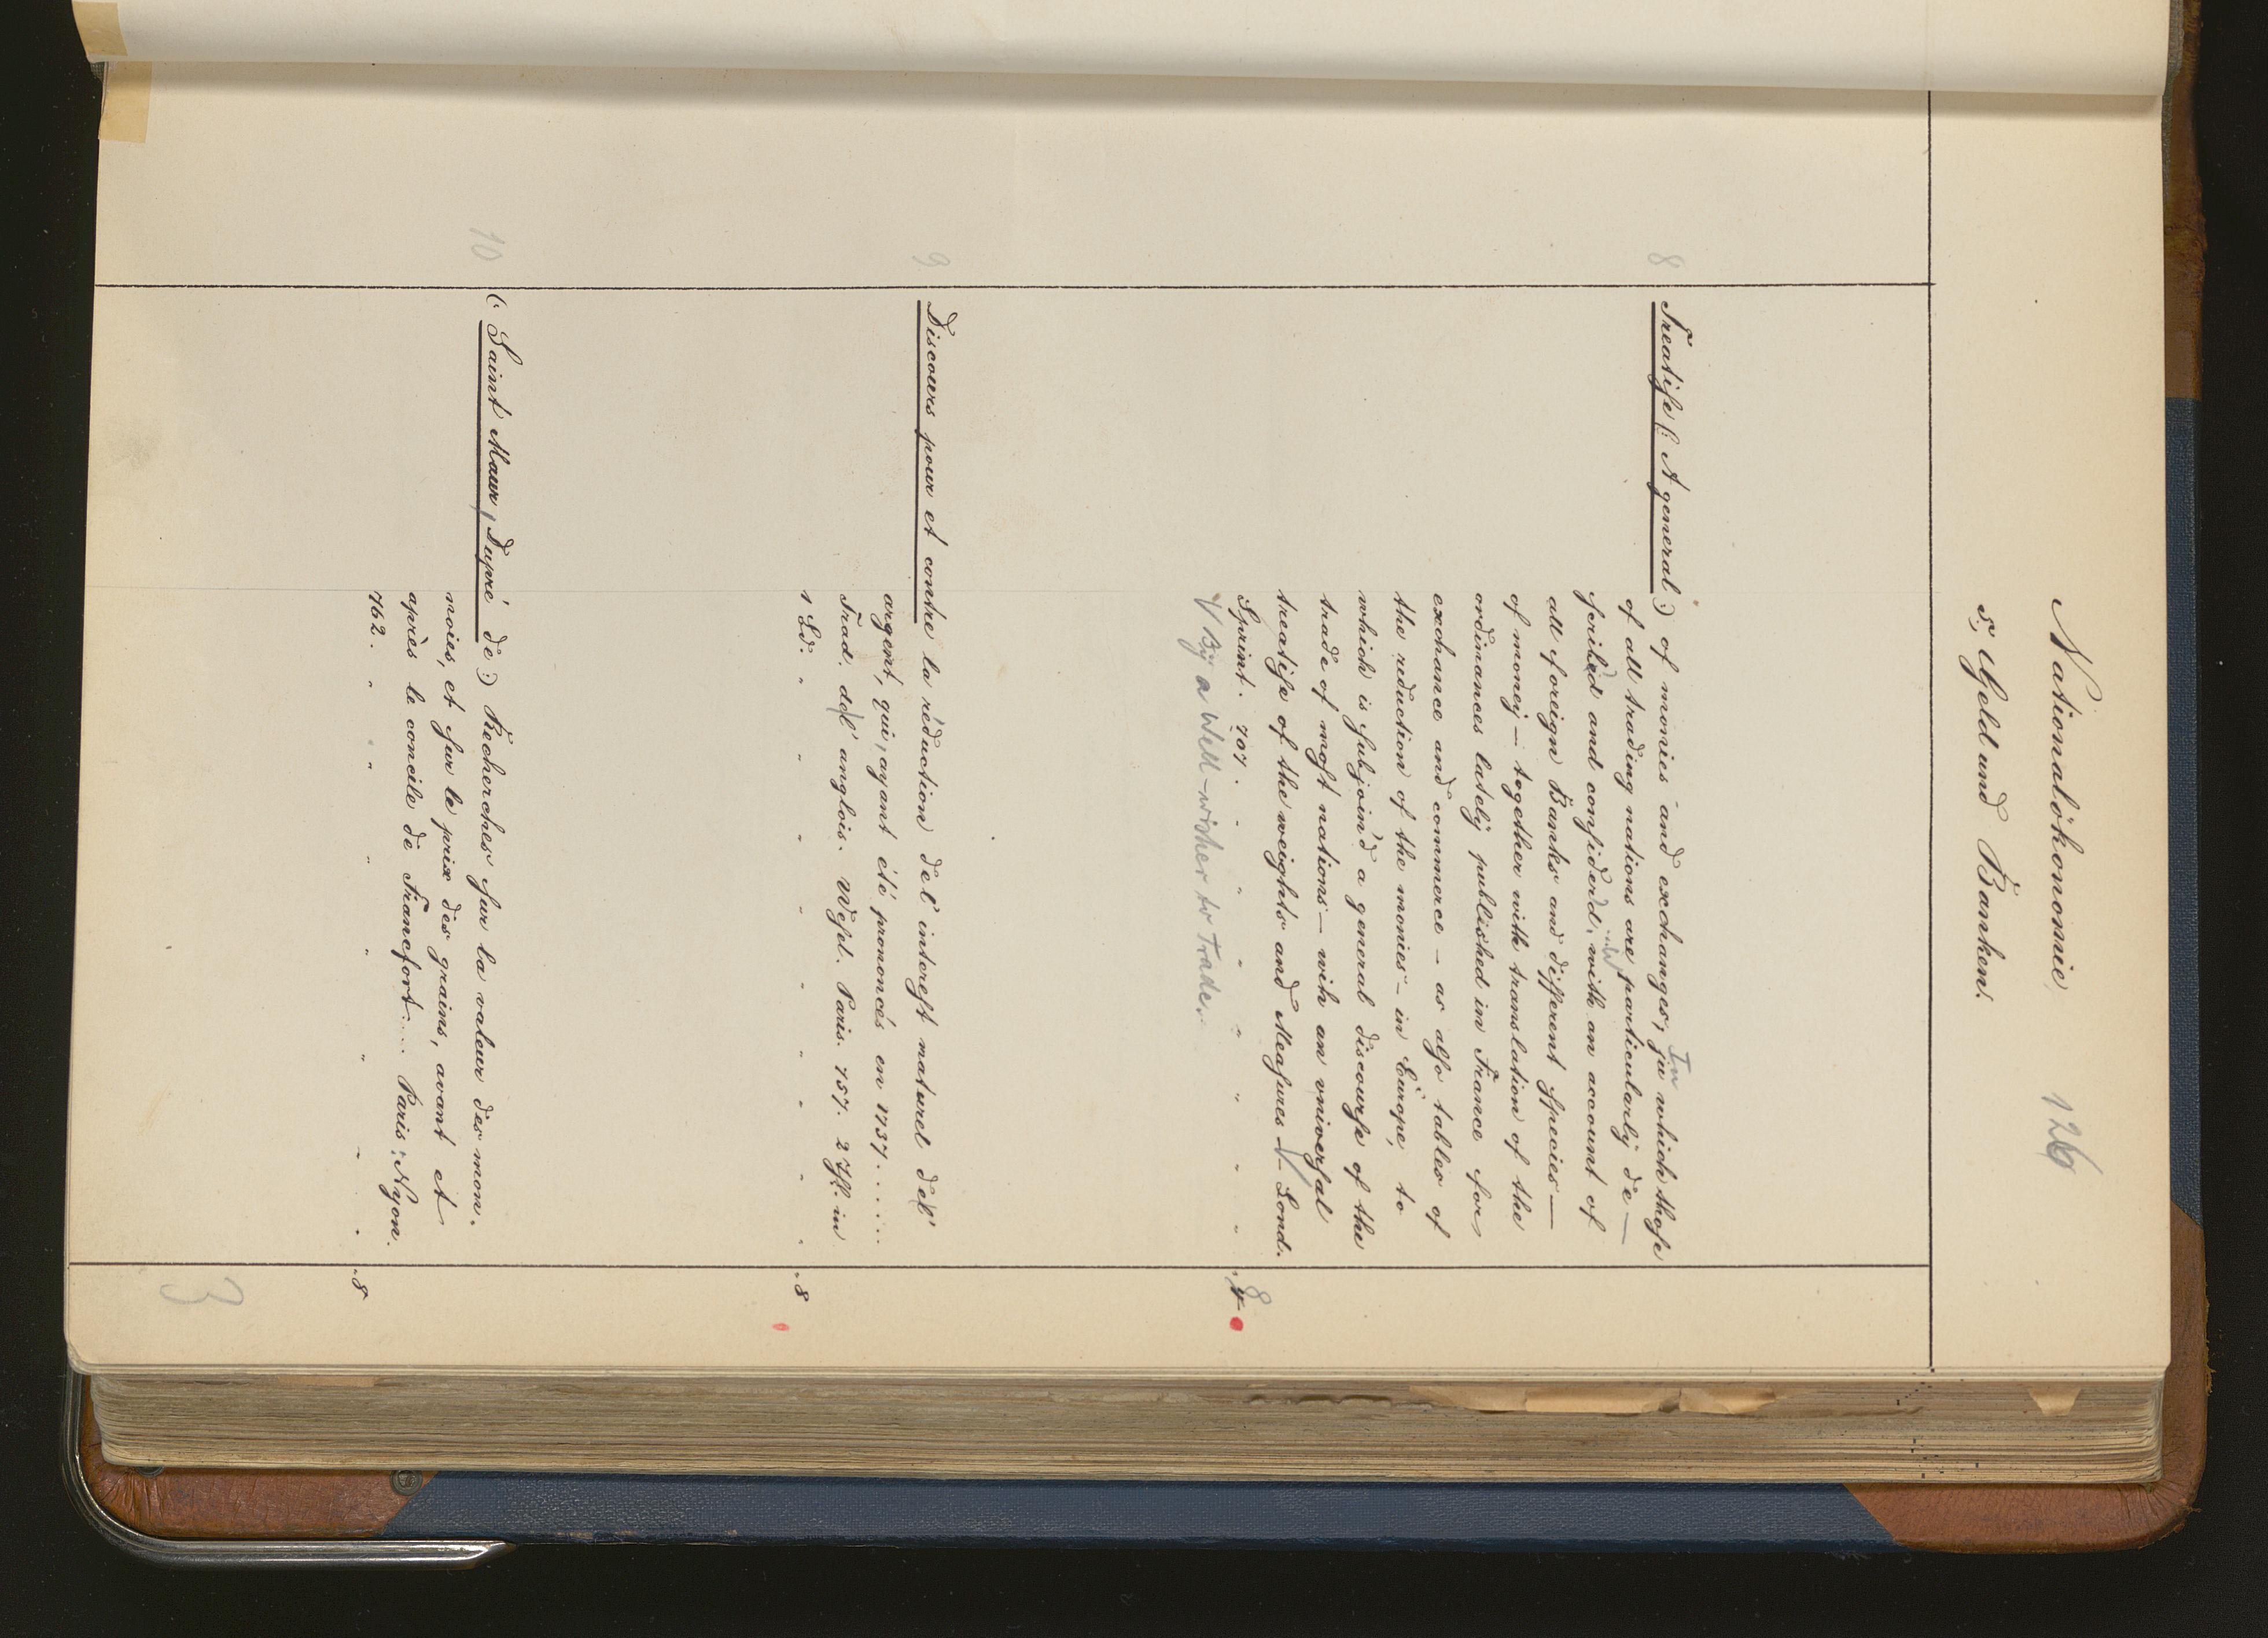 Nationalökonomie 126
5, Geld und Banken.
8 Treatise (: A general:) of monies and exchanges, In in which those
of all trading nations are particularly de —
scribed and considerd, with an account of
all foreign Banks and different species —
of money — together with translation of the
ordinances lately published in France for
exchance and commerce — as also tables of
the reduction of the monies — in Europe, to
which is subjoin'd a general discourse of the
trade of most nations — wih an vniversal
treatise of the weights and Measures — Lond.
Sprint. 707. " " " " " " . 4 8
√ By a Well-wisher to Trade.
9 Discours pour et contre la réduction de l'interest naturel de l'
argent, qui, ayant été prononcés en 1737.....
Trad. de l' anglois. Wesel. Paris. 757. 2 Thl. in
1 Bd. " " " " " " " . 8
10 (: Saint Maur, Dupré de:) Recherches sur la valeur des mon.
noies, et sur le prix des grains, avant et
après le concile de Francfort.... Paris: Nyon.
762. " " " " " " . 8
3